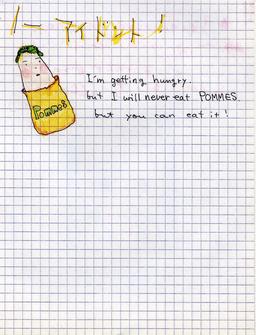 ノー アイドント！
I'm getting hungry.
but I will never eat POMMES.
but you can eat it!
Pommes